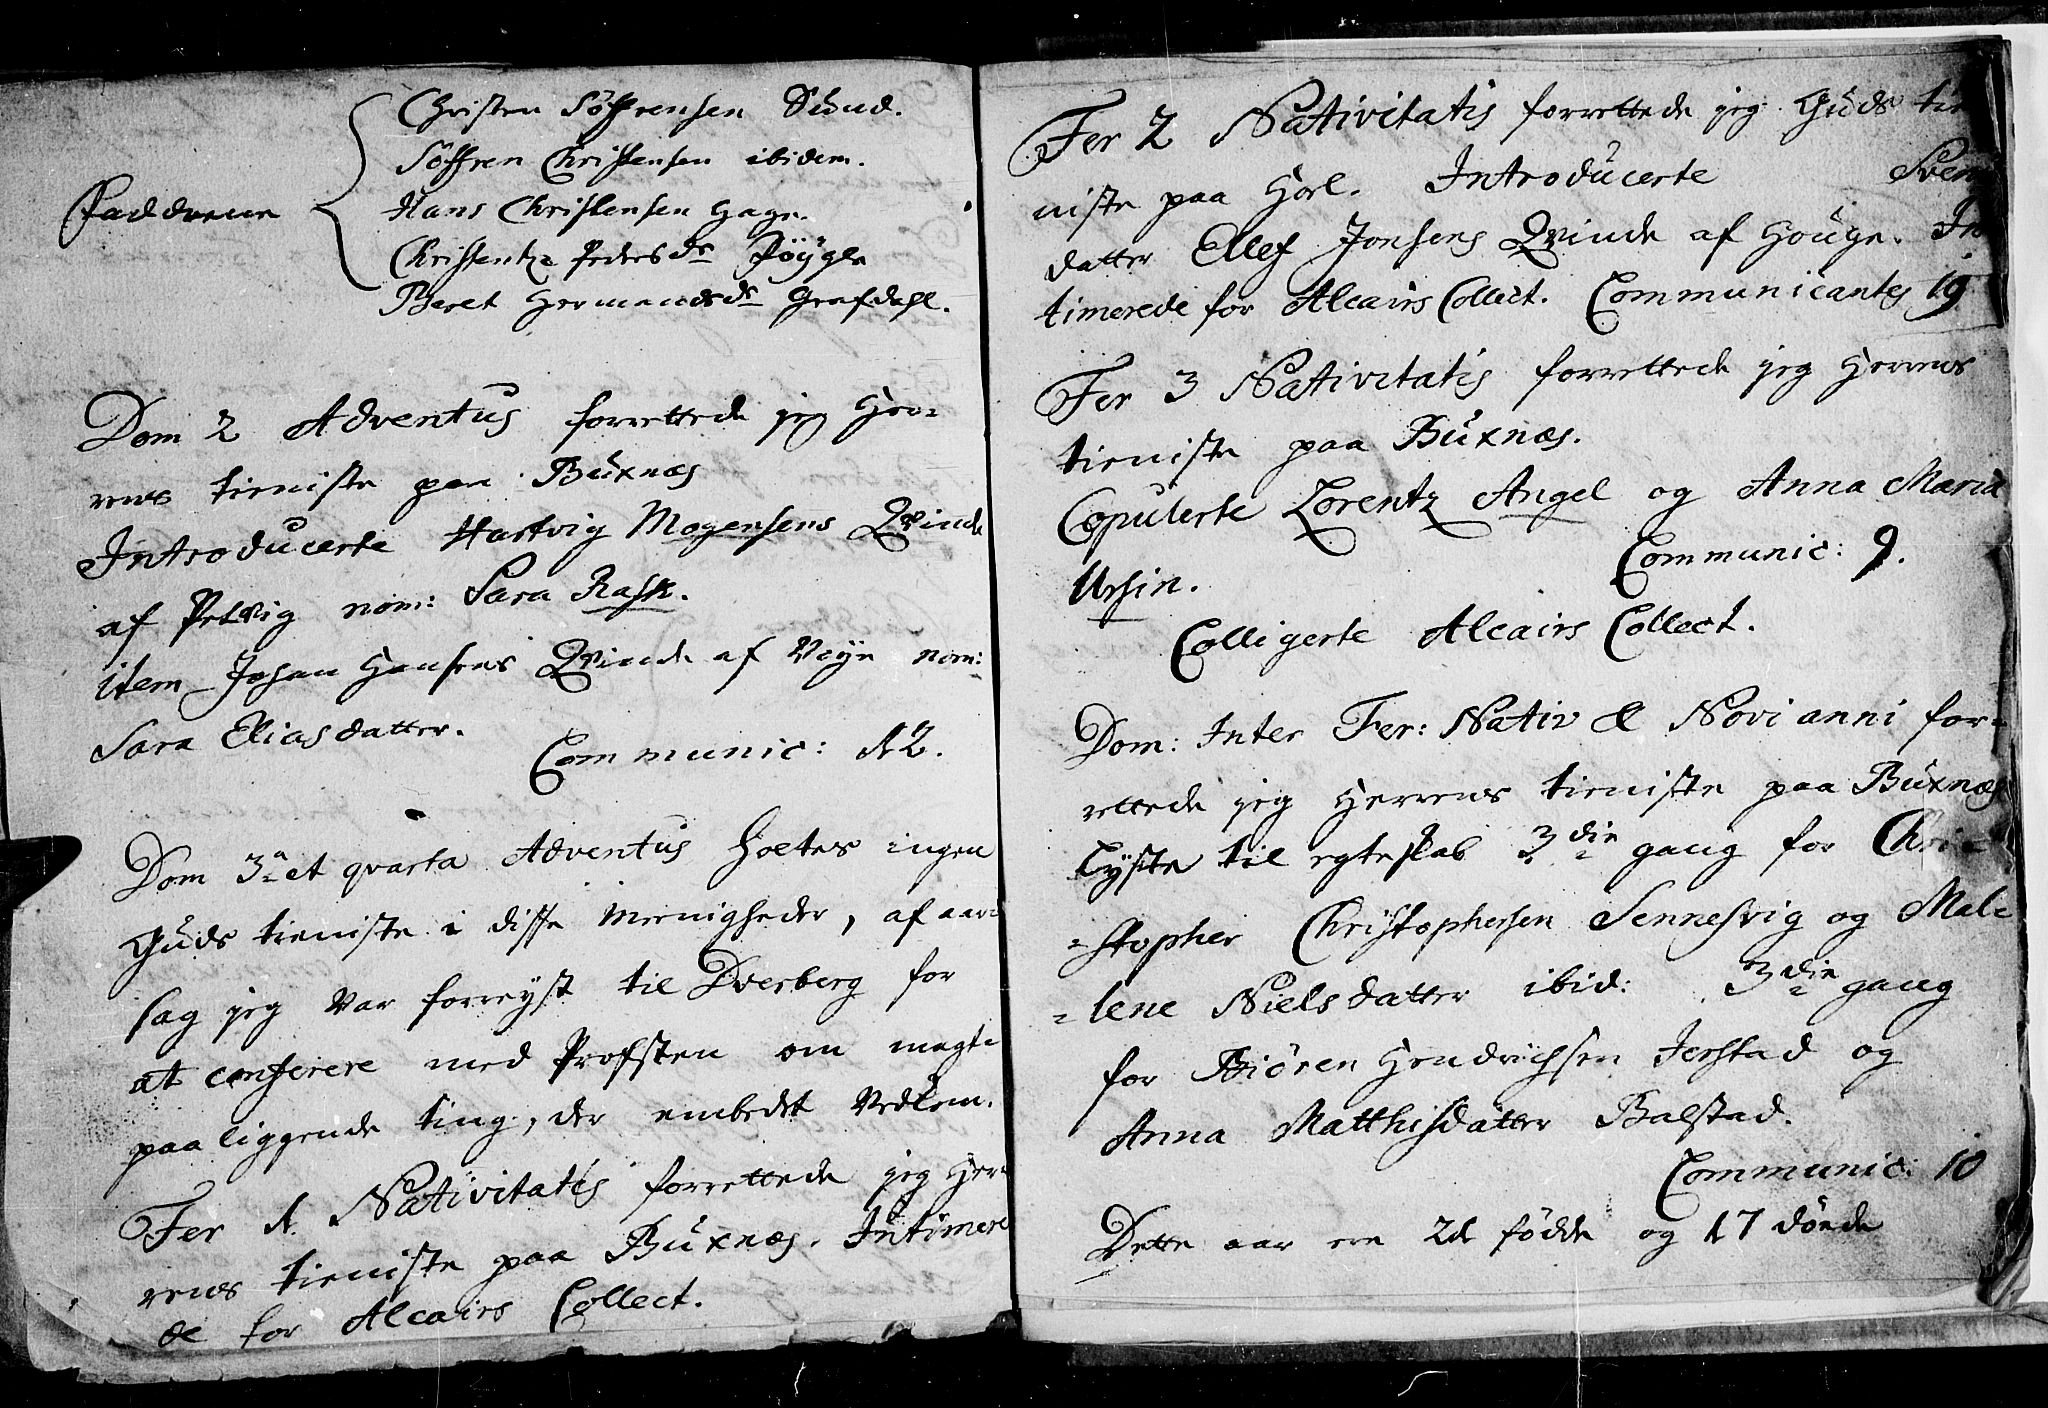 Christen Söffrensen Sund.
Söffren Christensen ibidem.
Fadderne Hans Christensen Hage.
Christentze Pedersdr Pöygla
Beret Hermandsdr Grafdahl.
Dom 2 Adventus forrettede jeg Her=
rens tieniste paa Buxnæs
Introducerte Hartvig Mogensens Qvinde
af Petvig nom: Sara Rask.
item Johan Hansens Qvinde af Voye nom:
Sara Eliasdatter.
Communic: 12.
Dom 3a et quarta Adventus holtes ingen
Guds tieniste i disse Meenigheder, af aar=
sag jeg var forreyst til Dverberg for
at conferere med Profsten om magt=
paaliggende ting, der embedet vedkom.
Fer 1 Nativitatis forrettede jeg Her=
rens tieniste paa Buxnæs. Intimere
de for Alcairs Collect.
Fer 2 Nativitatis forrettede jeg Guds tie
niste paa Hol. Introducerte Svens
datter Ellef Jonsens Qvinde af Houge. In
timerede for Alcairs Collect. Communicantes 19
Fer 3 Nativitatis forrettede jeg Herrens
tieniste paa Buxnæs.
Copulerte Lorentz Angel og Anna Maria
Ursin. Communic: 9.
Colligerte Alcairs Collect.
Dom: Inter Fer: Nativ & Novi anni for=
rettede jeg Herrens tieniste paa Buxnæs
Lyste til egteskab 3die gang for Chri=
=stopher Christophersen Sennesvig og Mal=
=lene Nielsdatter ibid: 3die gang
for Biören Hendrichsen Jerstad og
Anna Matthisdatter Balstad.
Communic: 10
Dette aar ere 21 födde og 17 döede